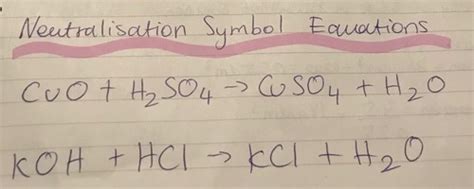 Neutralisation Symbol Equations
CuO + H₂SO₄ → CuSO₄ + H₂O
KOH + HCl → KCl + H₂O